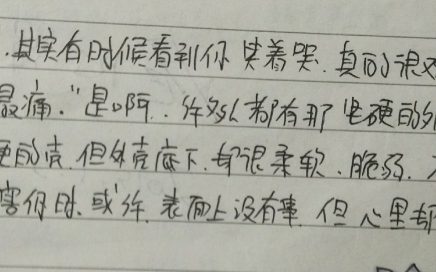 .其实有时候看到你 笑着哭.真的很
最痛."是啊..许多人都有那坚硬的外
硬的壳.但外壳底下.却很柔软.脆弱.
害你时.或许.表面上没有事.但心里却